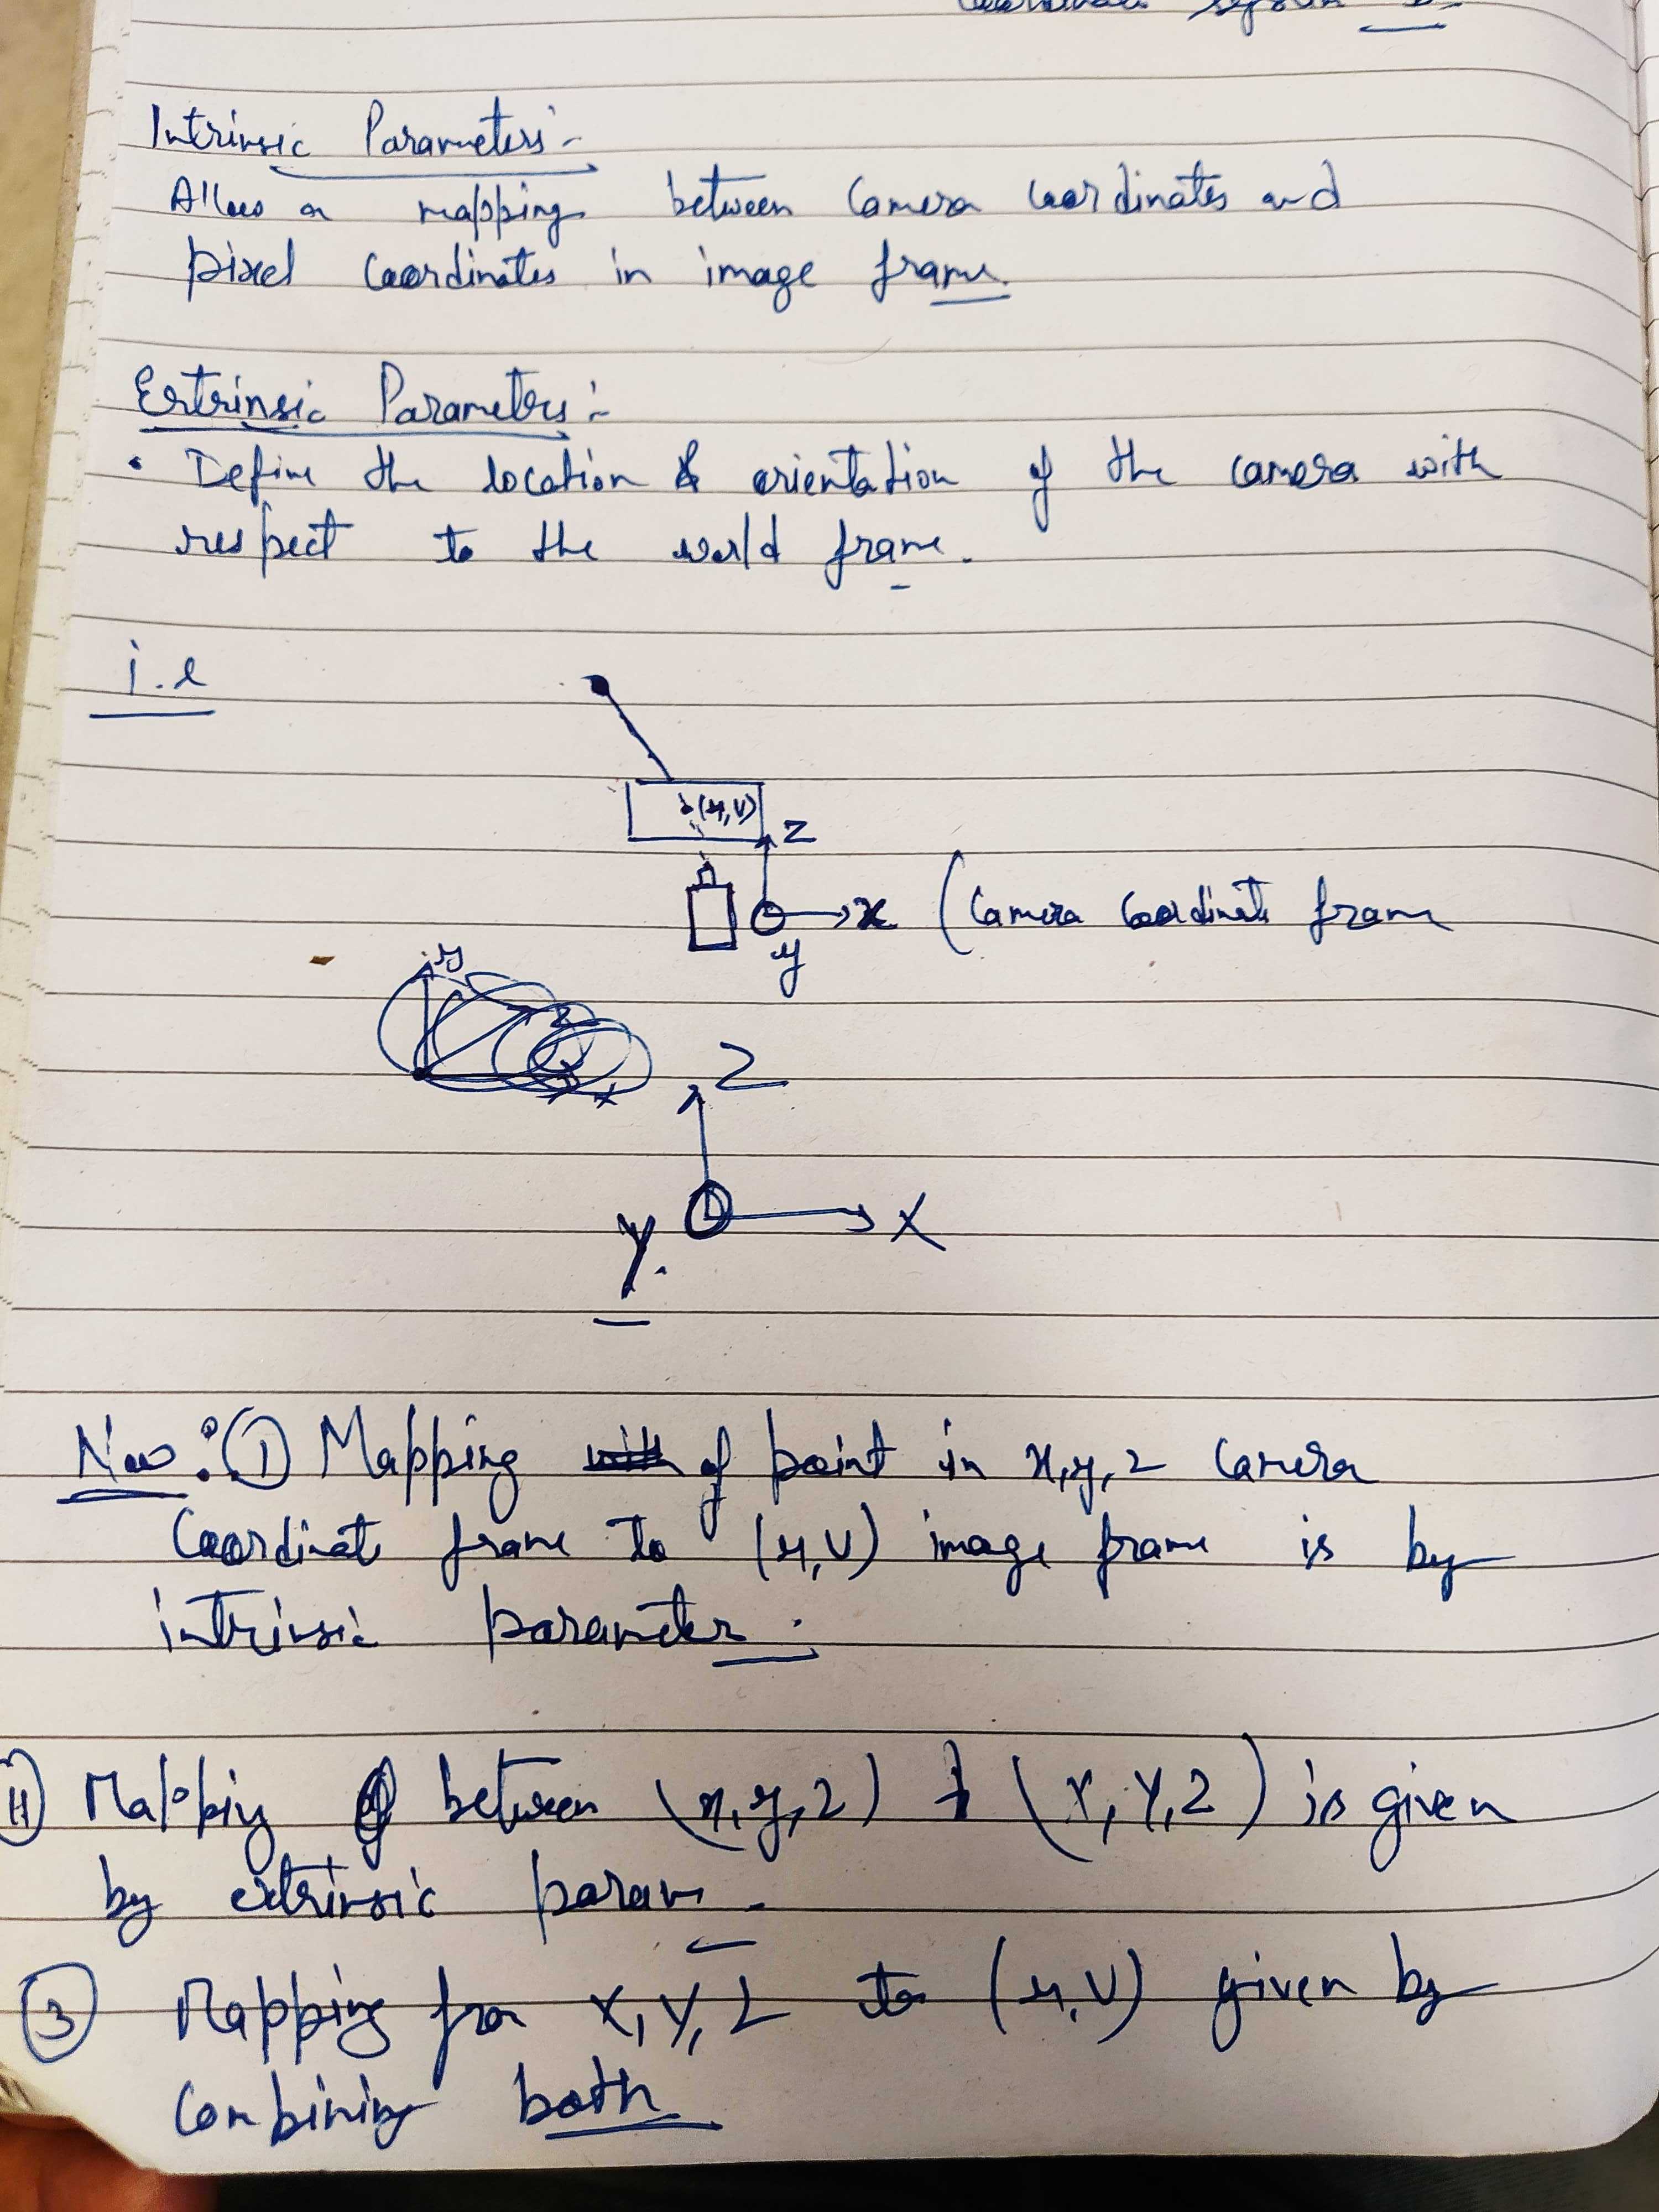 Intrinsic Parameters :-
Allows a mapping between Camera Coordinates and
pixel Coordinates in image frame.
Extrinsic Parameters :-
• Define the location & orientation of the camera with
respect to the world frame.
i.e
(u,v)
z
x (Camera Coordinate frame
y
y
z
x
Z
X
Y.
Now : ① Mapping of point in x,y,z Camera
Coordinate frame to (u,v) image frame is by
intrinsic parameter :
ii) Mapping between (x,y,z) & (X,Y,Z) is given
by extrinsic param -
③ Mapping from X,Y,Z to (u,v) given by
Combining both